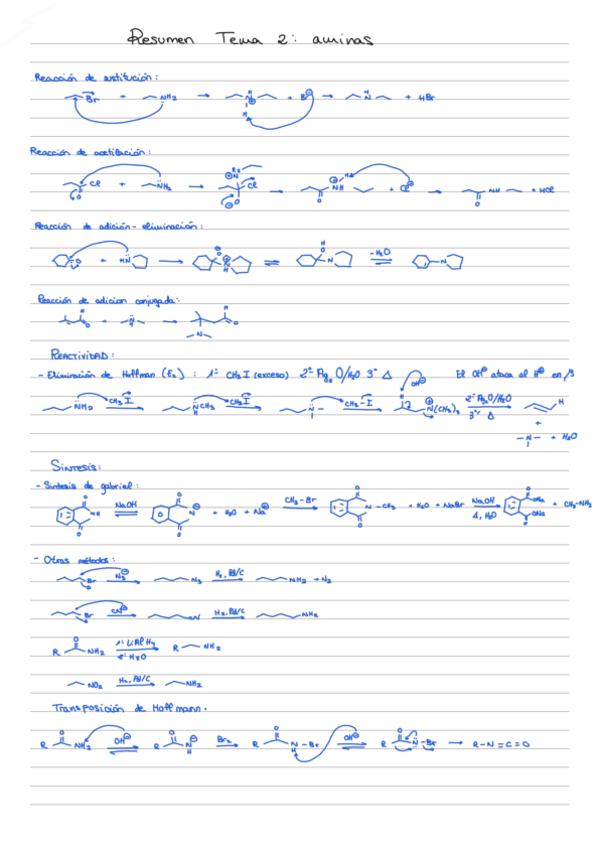 Resumen Tema 2: aminas
Reacción de sustitución:
Br + NH2 → N H H + Br⊖ → N H + HBr
Reacción de acetilación:
Cl O + NH2 → Cl O⊖ → NH O + Cl⊖ → NH O + HCl
Reacción de adición-eliminación:
O + HN → O N H ⇌ O H N ⇌ -H2O N
Reacción de adicion conjugada:
O H + N H → N O H
REACTIVIDAD:
- Eliminación de Hoffman (E2): 1º CH3I (exceso) 2º Ag2O/H2O 3º Δ OH⊖ El OH⊖ ataca al H⊕ en β
NH2 CH3I → NCH3 H CH3I → N CH3-I → H N⊕(CH3)3 2º Ag2O/H2O 3º Δ → H + N + H2O
SÍNTESIS:
- Síntesis de gabriel:
O NH O NaOH ⇌ O N⊖ O + H2O + Na⊕ CH3-Br → O N-CH3 O + H2O + NaBr NaOH Δ, H2O → O ONa ONa O + CH3-NH2
- Otros métodos:
Br N3⊖ → N3 H2, Pd/C → NH2 + N2
Br CN⊖ → N H2, Pd/C → NH2
R O NH2 1º LiAlH4 2º H2O → R NH2
NO2 H2, Pd/C → NH2
Transposición de Hoffmann.
R O NH2 OH⊖ ⇌ R O NH⊖ Br2 → R O N-Br H OH⊖ ⇌ R O N-Br → R-N=C=O